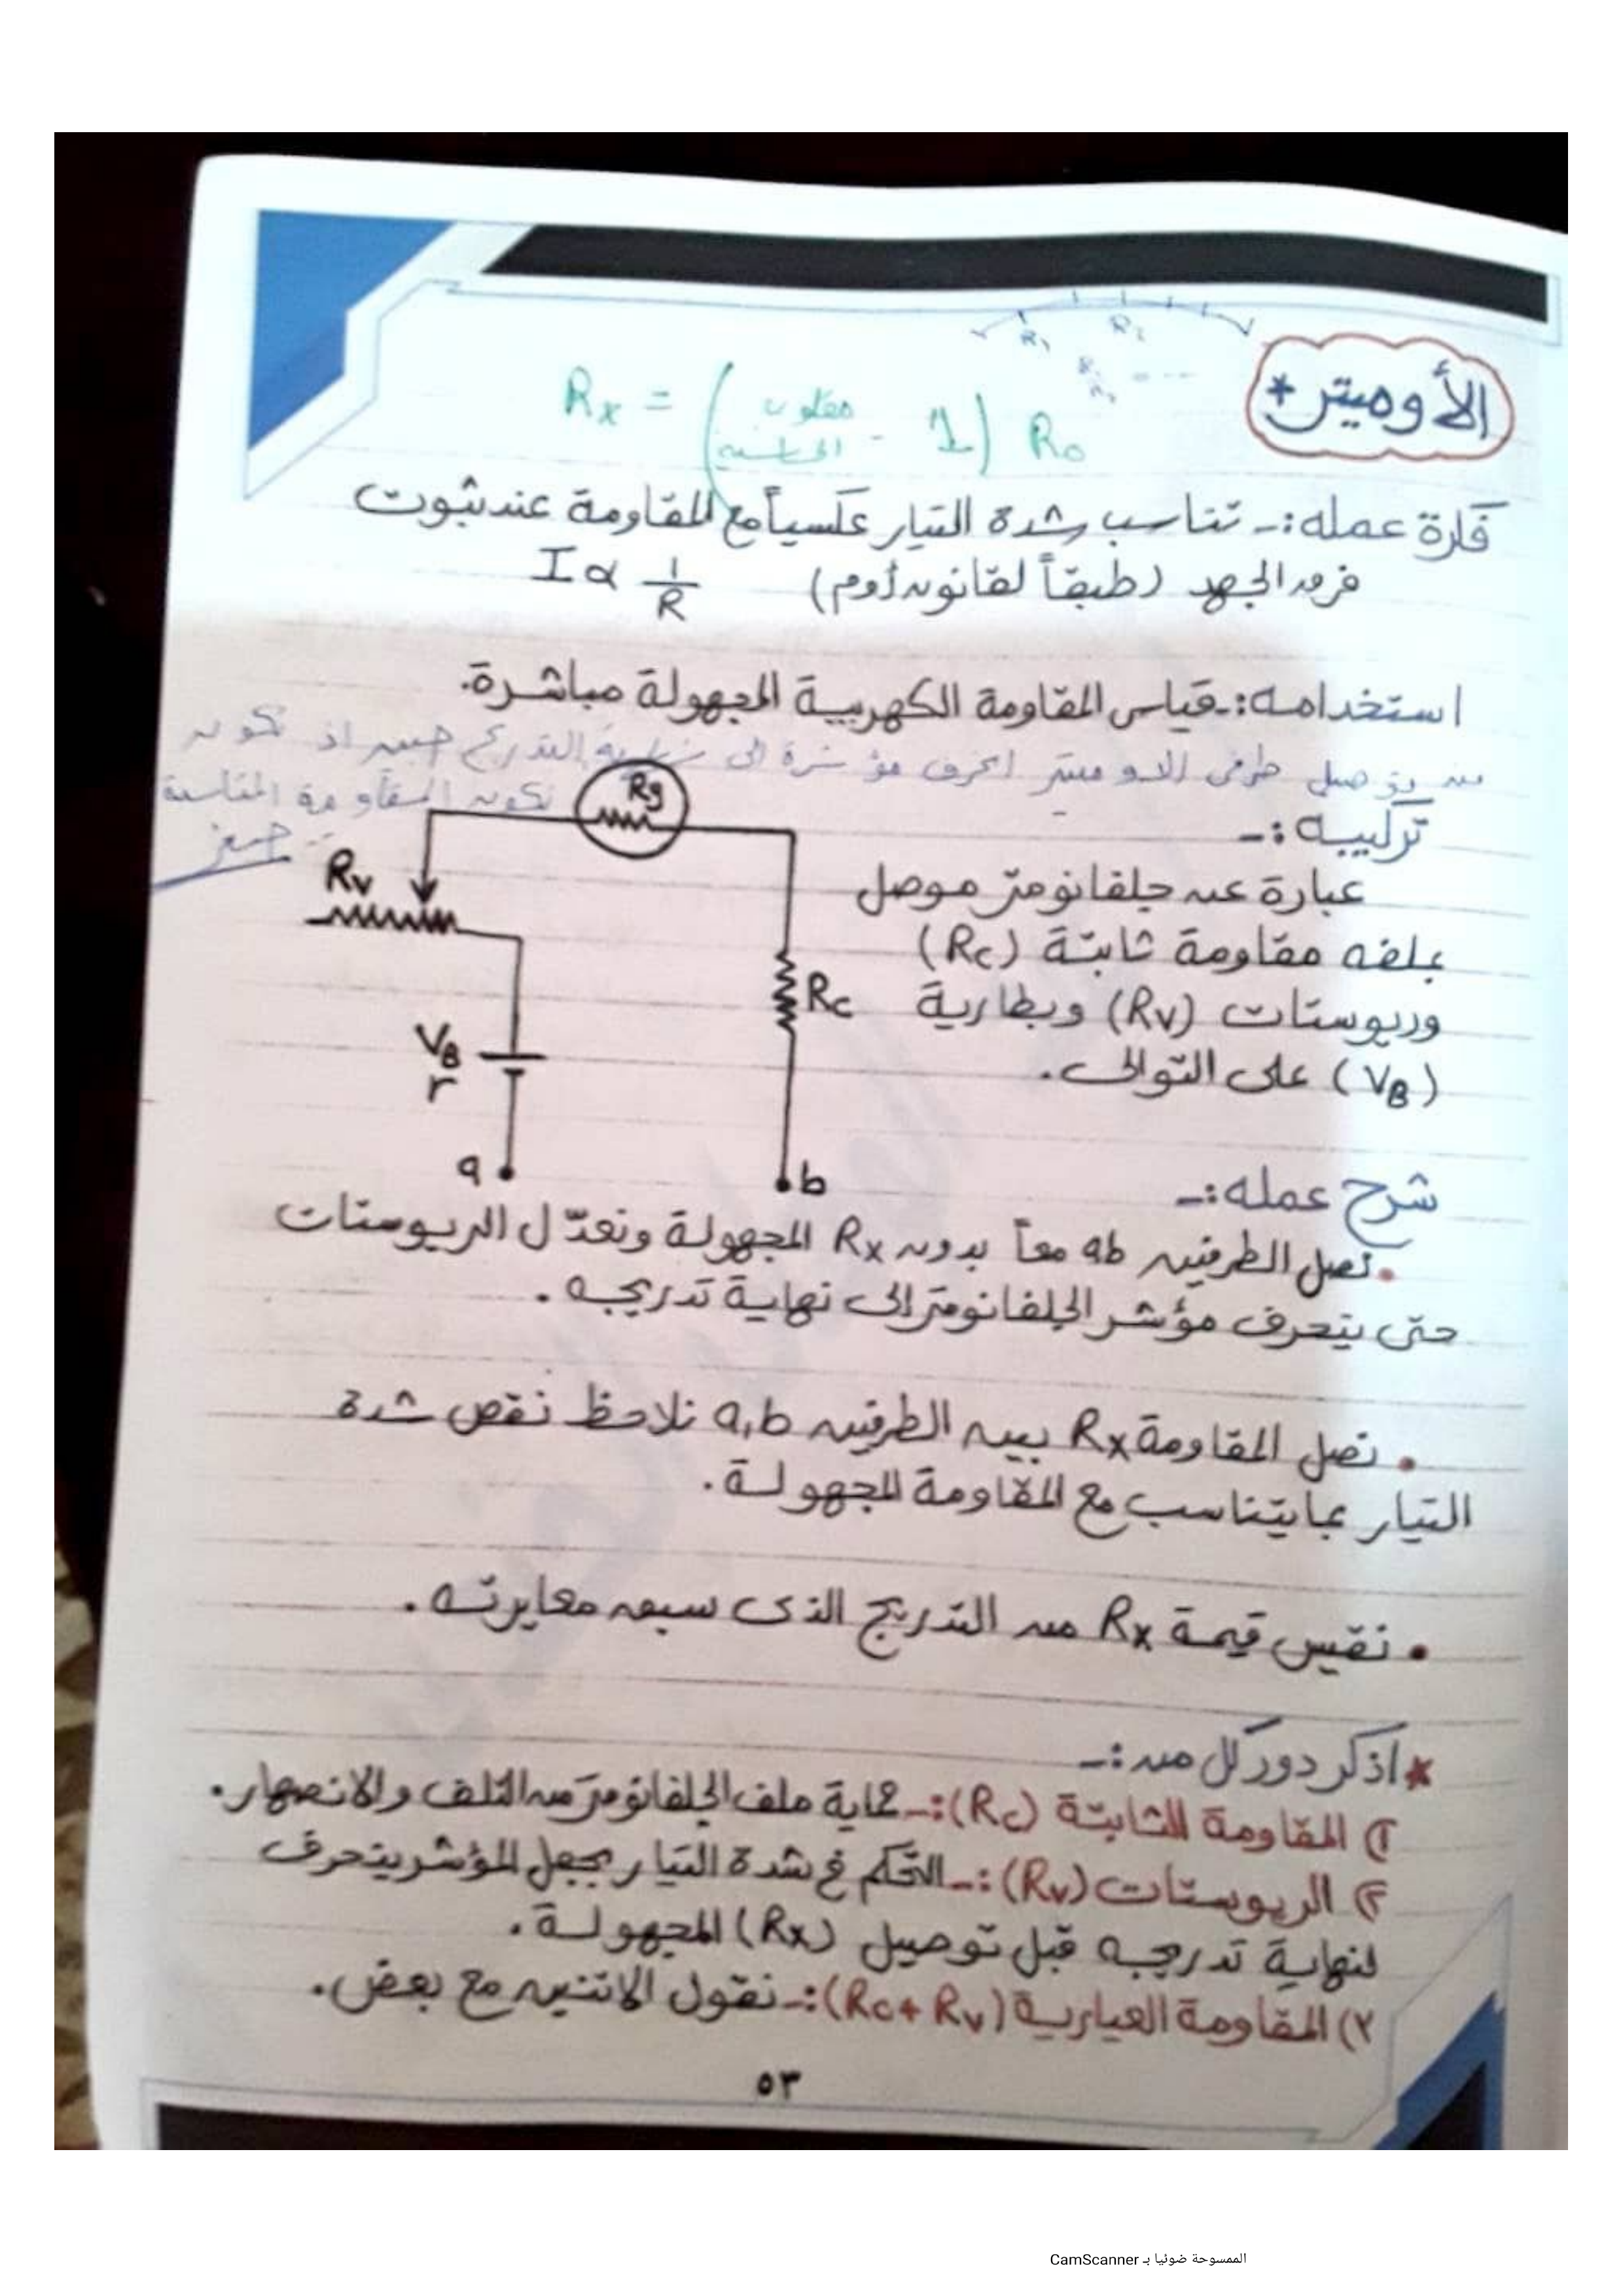 الأوميتر *
Rx = (مقلوب الحساسية - 1) Ro
R1 R2
فكرة عمله :- تناسب شدة التيار عكسياً مع المقاومة عند ثبوت
فرق الجهد (طبقاً لقانون أوم) I α 1/R
استخدامه :- قياس المقاومة الكهربية المجهولة مباشرة.
طرفى الاوميتر انحرف مؤشرة الى التدريج
تكون المقاومة المقاسة
صفر
تركيبه :-
عبارة عن جلفانومتر موصل
بملفه مقاومة ثابتة (Rc)
وريوستات (Rv) وبطارية
(VB) على التوالى.
Rg
Rv
Rc
VB
r
a
b
شرح عمله :-
• نصل الطرفين ab معاً بدون Rx المجهولة ونعدّل الريوستات
حتى ينحرف مؤشر الجلفانومتر إلى نهاية تدريجه.
• نصل المقاومة Rx بين الطرفين a,b نلاحظ نقص شدة
التيار بما يتناسب مع المقاومة المجهولة.
• نقيس قيمة Rx من التدريج الذى سبق معايرته.
* اذكر دور كل من :-
١) المقاومة الثابتة (Rc) :- حماية ملف الجلفانومتر من التلف والانصهار.
٢) الريوستات (Rv) :- التحكم فى شدة التيار بجعل المؤشر ينحرف
لنهاية تدريجه قبل توصيل (Rx) المجهولة.
٣) المقاومة العيارية (Rc + Rv) :- نقول الاتنين مع بعض.
٥٣
الممسوحة ضوئيا بـ CamScanner